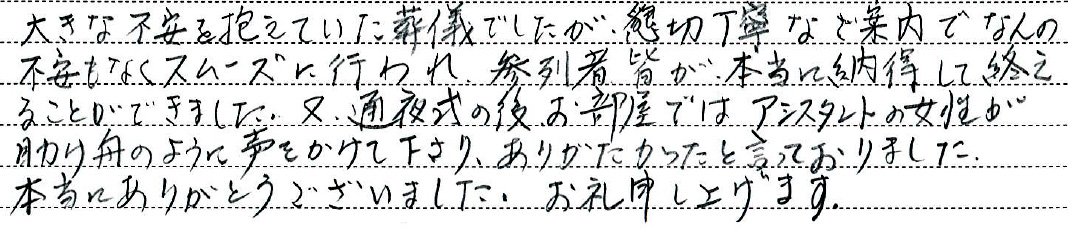 大きな不安を抱えていた葬儀でしたが、懇切丁寧なご案内でなんの
不安もなくスムーズに行われ、参列者皆が本当に納得して終え
ることができました。又、通夜式の後、お部屋ではアシスタントの女性が
助け舟のように声をかけて下さり、ありがたかったと言っておりました。
本当にありがとうございました。お礼申し上げます。